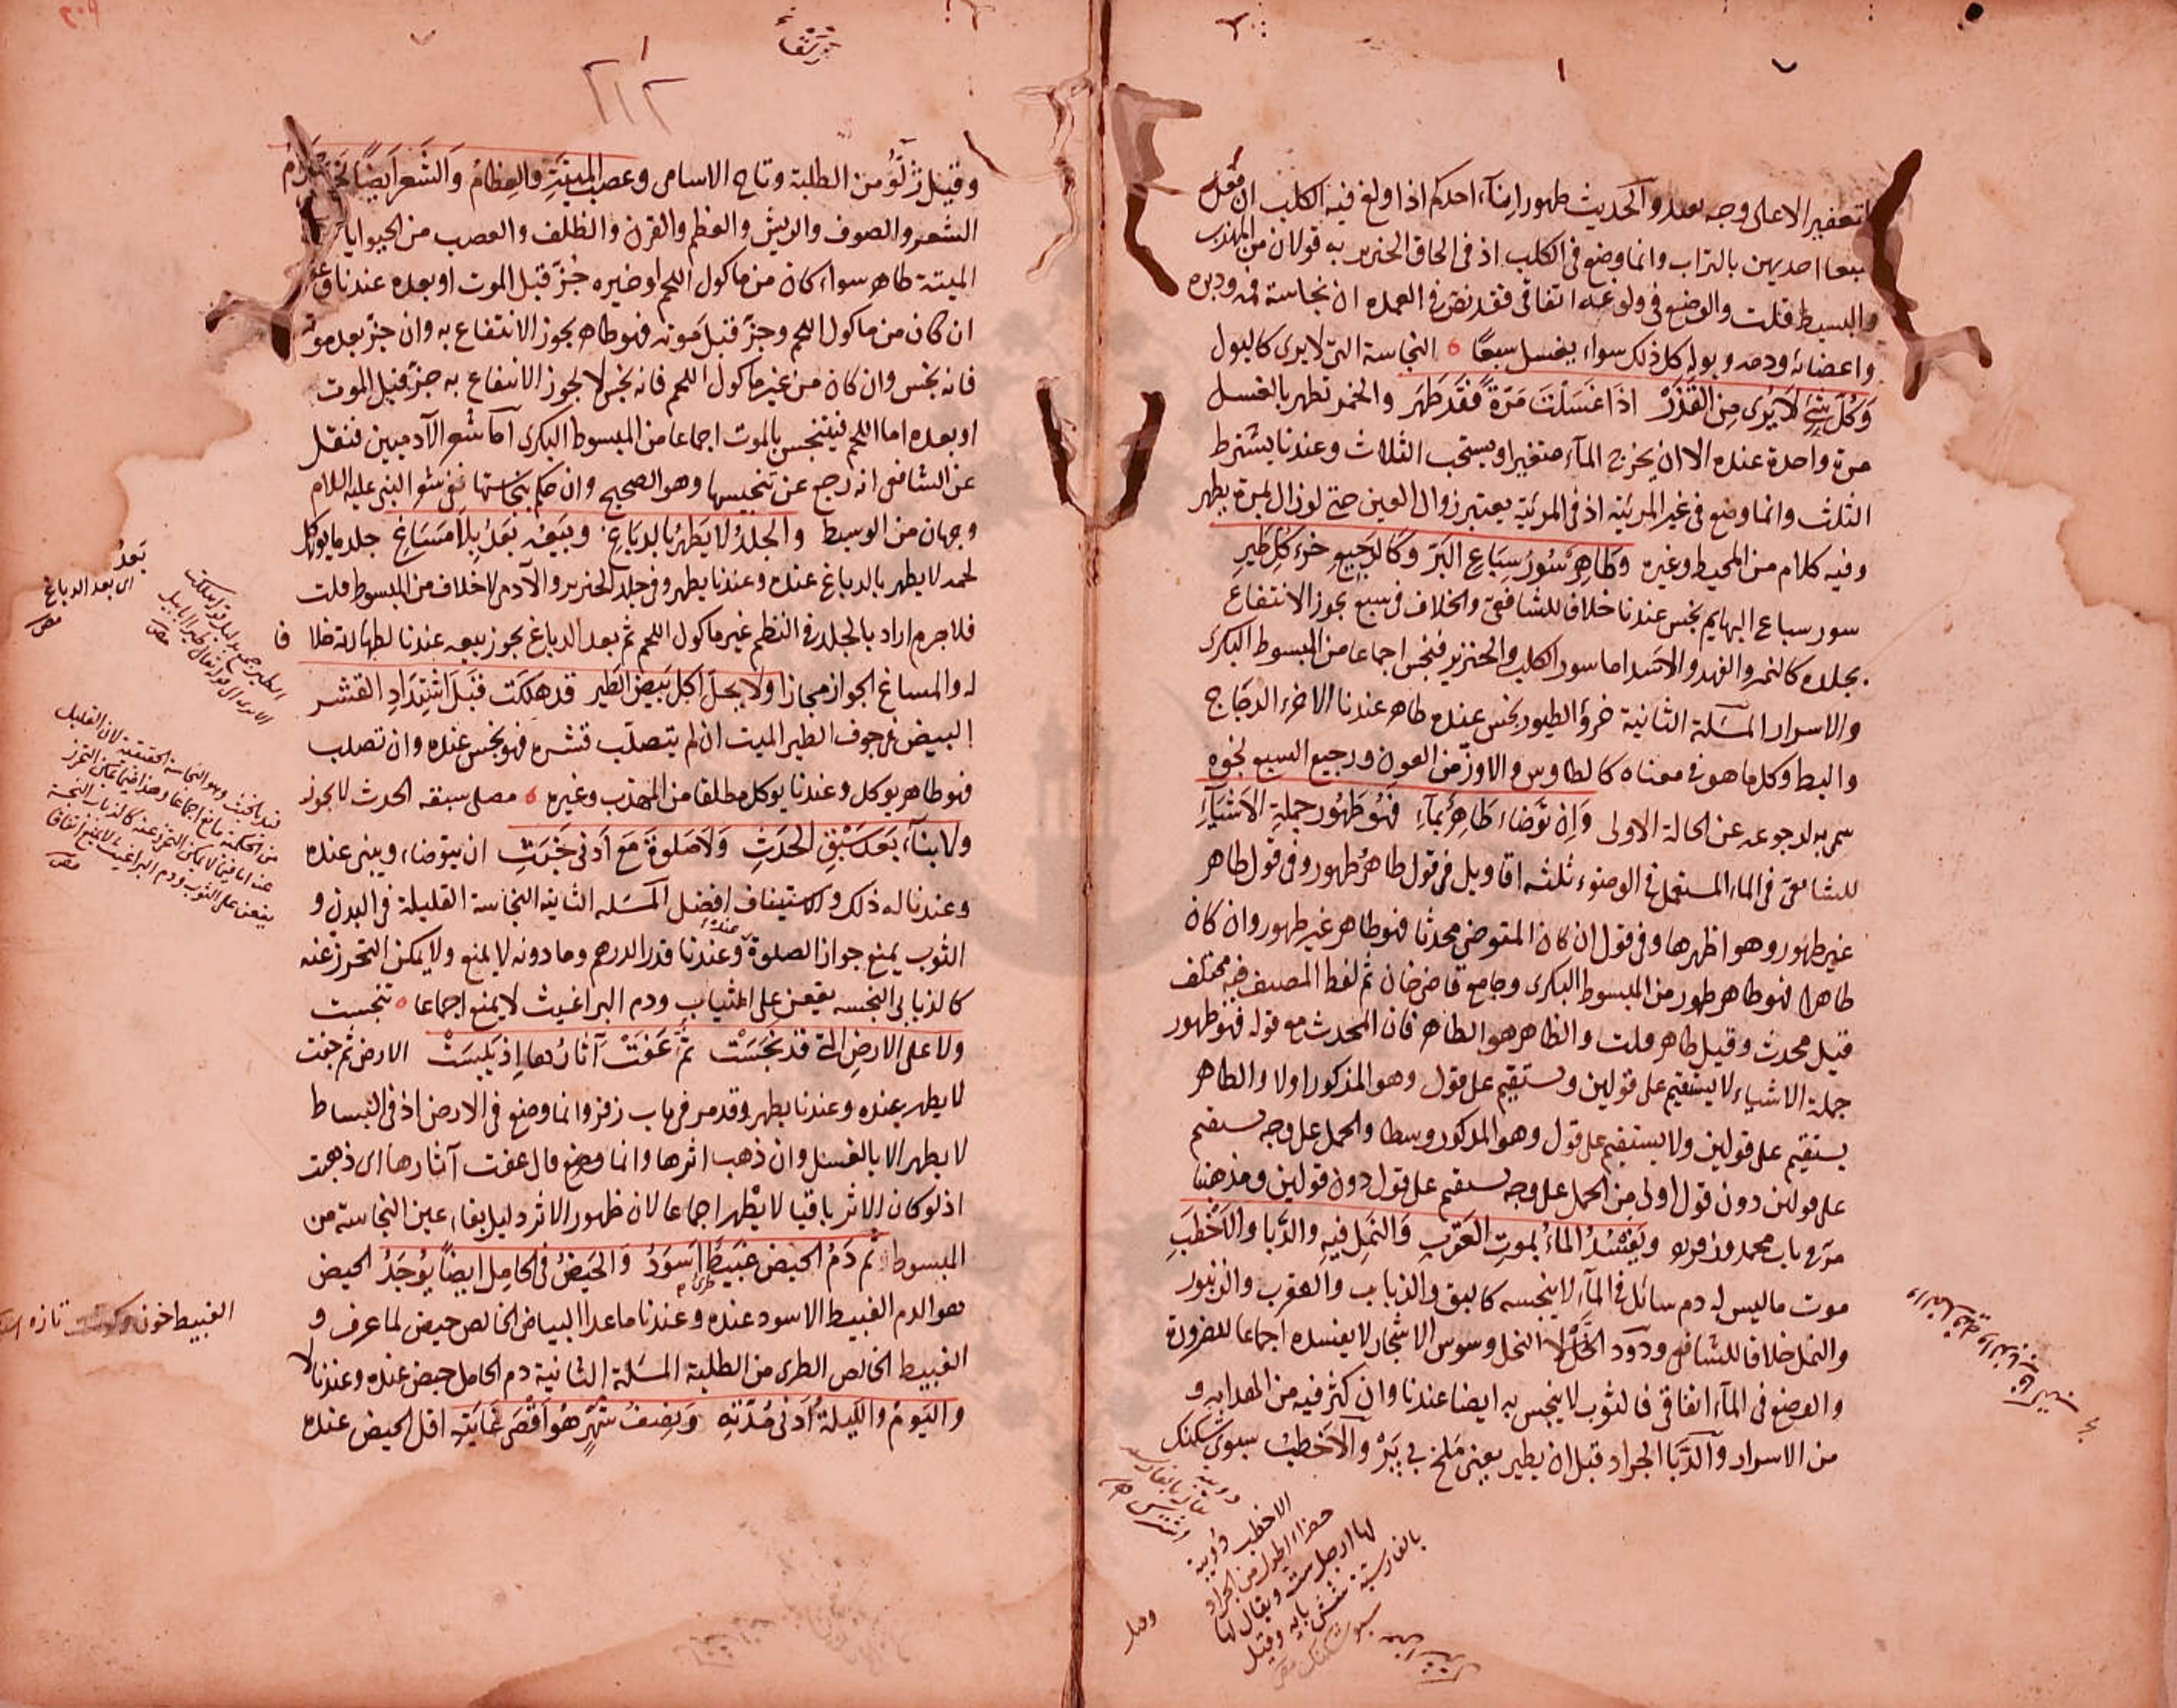 لتعفير الاعلى وجه بعده والحديث طهور اناء احدكم اذا ولغ فيه الكلب ان يغسل
سبعا احديهن بالتراب وانما وضع فى الكلب اذ فى الحاق الخنزير به قولان من المهذب
والبسيط قلت والوضع فى ولوغه اتفاقى فقد نص فى العمده ان نجاسة فمه ودبره
واعضائه ودمه وبوله كل ذلك سواء يغسل سبعا النجاسة التى لا يرى كالبول
وَكُلُّ شَئٍ لَا يُرَى مِنَ القَذَرْ اذَا غَسَلْتَ مَرَّةً فَقَد طَهَر والخمر تطهر بالغسل
مرة واحدة عنده الا ان يخرج المآء متغيرا ويستحب الثلاث وعندنا يشترط
الثلث وانما وضع فى غير المرئية اذ فى المرئية يعتبر زوال العين حتى لو زال بمرة يطهر
وفيه كلام من المحيط وغيره وَطَاهِرٌ سُورُ سِبَاعِ البَرّ وَكَالرَجِيعِ خرءُ كُلِّ طَيرِ
سور سباع البهايم نجس عندنا خلافا للشافعى والخلاف فى سبع يجوز الانتفاع
بجلده كالنمر والفهد والاسد اما سور الكلب والخنزير فنجس اجماعا من المبسوط البكرى
والاسرار المسئلة الثانية خرؤ الطيور نجس عنده طاهر عندنا الا خرء الدجاج
والبط وكل ما هو فى معناه كالطاوس والاوزّ من العون ورجيع السبع نجوه
سمى به لرجوعه عن الحالة الاولى وَاِن تَوَضَّاءَ طَاهِرٌ بمآءِ فَهُوَ طَهُور جملةِ الاَشيَآءِ
للشافعى فى الماء المستعمل فى الوضوء ثلثه اقاويل فى قول طاهر طهور وفى قول طاهر
غير طهور وهو اظهرها وفى قول ان كان المتوضى محدثا فهو طاهر غير طهور وان كان
طاهرا فهو طاهر طهور من المبسوط البكرى وجامع قاضى خان ثم لفظ المصنف فيه مختلف
قيل محدث وقيل طاهر قلت والظاهر هو الطاهر فان المحدث مع قوله فهو طهور
جملة الاشياء لا يستقيم على قولين ويستقيم على قول وهو المذكور اولا والطاهر
يستقيم على قولين ولا يستقيم على قول وهو المذكور وسطا والحمل على وجه يستقيم
على قولين دون قول اولى من الحمل على وجه يستقيم على قول دون قولين ومذهبنا
مرّ فى باب محمد وزفر ويَفْسُدُ الماءُ بموتِ العَقرَبِ وَالنَمِل فيهِ والدَّبا والاَخْطَبِ
موت ما ليس له دم سائل فى المآء لا ينجسه كالبق والذباب والعقرب والزنبور
والنمل خلافا للشافعى ودود الخل وسوس الاشجار لا يفسده اجماعا للضرورة
والوضع فى المآء اتفاقى فالثوب لا ينجس به ايضا عندنا وان كثر فيه من الهدايه و
من الاسرار والدَّبا الجراد قبل ان يطير يعنى ملخ بى پَرْ والاَخطَب سبوى شكنك
الاخطب دويبة
خضراء اطول من الجراد
لها ارجل ست ويقال لها
بالفارسية شش پايه وقيل
سبو شكنك
وقيل نزلوُ من الطلبة وتاج الاسامى وعصب الميتَةِ والعِظَامُ وَالشَّعر ايضًا نَجَسٌ حَرَامُ
الشعر والصوف والريش والعظم والقرن والظلف والعصب من الحيوانات
الميتة طاهر سواء كان من ماكول اللحم او غيره جُزّ قبل الموت او بعده عندنا وعنده
ان كان من ماكول اللحم وجزّ قبل موته فهو طاهر يجوز الانتفاع به وان جزّ بعد موته
فانه نجس وان كان من غير ماكول اللحم فانه نجس لا يجوز الانتفاع به جزّ قبل الموت
او بعده اما اللحم فيتنجس بالموت اجماعا من المبسوط البكرى اما شعر الآدميين فنقل
عن الشافعى انه رجع عن تنجيسها وهو الصحيح وان حكم بنجاستها ففى شعر النبى عليه السلام
وجهان من الوسيط والجلدُ لا يَطهُرُ بالدبَاغِ وبَيعُه بَعدُ بِلَا مَسَاغِ جلد ما يوكل
لحمه لا يطهر بالدباغ عنده وعندنا يطهر وفى جلد الخنزير والآدمى لا خلاف من المبسوط قلت
فلا جرم اراد بالجلد فى النظم غير ماكول اللحم ثم بعد الدباغ يجوز بيعه عندنا لطهارته خلافا
له والمساغ الجواز مجازا ولا يحلّ اكل بَيض الطَير قد هلكت قبلَ اشتِدَادِ القشر
البيض فى جوف الطير الميت ان لم يتصلب قشره فهو نجس عنده وان تصلب
فهو طاهر يوكل وعندنا يوكل مطلقا من المهذب وغيره مصلى سبقه الحدث لا يجوز
ولا بنآء بَعدَ سَبْقِ الحَدَثِ وَلَا صَلوةَ مَعَ اَدنى خَبَثِ ان يتوضاء ويبنى عنده
وعندنا له ذلك والاستيناف افضل المسئله الثانيه النجاسة القليلة فى البدن و
الثوب يمنع جواز الصلوة عنده وعندنا قدر الدرهم وما دونه لا يمنع ولا يمكن التحرز عنه
كالذباب النجسه يقعن على الثياب ودم البراغيث لا يمنع اجماعا تنجست
ولا على الارض التى قد نَجُسَتْ ثمَّ عَفَتْ آثارُها اِذ يَبِسَتْ الارض ثم جفت
لا يطهر عنده وعندنا يطهر وقد مر فى باب زفر وانما وضع فى الارض اذ فى البساط
لا يطهر الا بالغسل وان ذهب اثرها وانما وضع قال عفت آثارها اى ذهبت
اذ لو كان الاثر باقيا لا يطهر اجماعا لان ظهور الاثر دليل بقاء عين النجاسة من
المبسوط ثم دَمُ الحَيضِ عَبيطٌ اَسوَدُ وَالحَيضُ فى الحامِل ايضاً يُوجَدُ الحيض
هو الدم العبيط الاسود عنده وعندنا ما عدا البياض الخالص حيض لما عرف و
العبيط الخالص الطرى من الطلبة المسئلة الثانية دم الحامل حيض عنده وعندنا لا
واليَومُ والَّليلَةُ اَدنى مُدَّتِهِ وَنِصفُ شَهرٍ هُوَ اَقْصَى غَايَتِهِ اقل الحيض عنده
بَعدُ
اى بعد الدباغ
العبيط خون تازه